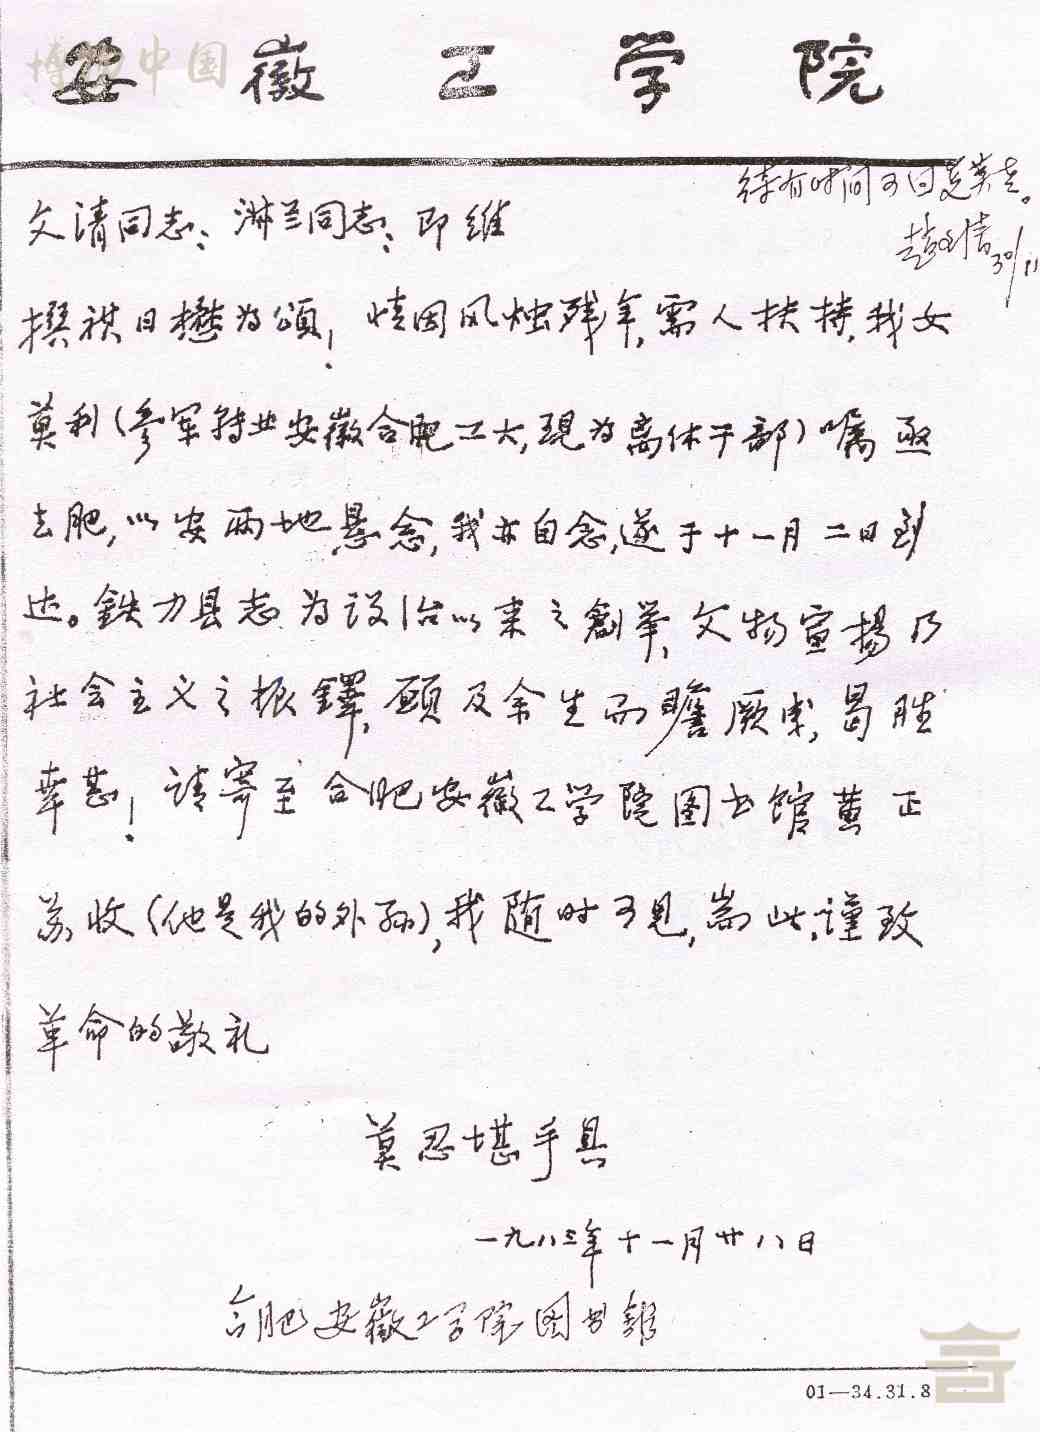 安徽工学院
待有时间可回
30/11
文清同志：淋兰同志：即维
撰祺日懋为颂！情因风烛残年，需人扶持，我女
莫利（参军转业安徽合肥工大，現为离休干部）嘱亟
去肥，以安两地悬念，我亦自念，遂于十一月二日到
达。鉄力县志为设治以来之創举，文物宣揚乃
社会主义之振鐸，顾及余生而瞻厥成，曷胜
幸甚！请寄至合肥安徽工学院图书馆黄正
苏收（他是我的外孙），我随时可見，耑此，谨致
革命的敬礼
莫忍堪手具
一九八三年十一月廿八日
合肥安徽工学院图书館
01—34.31.8